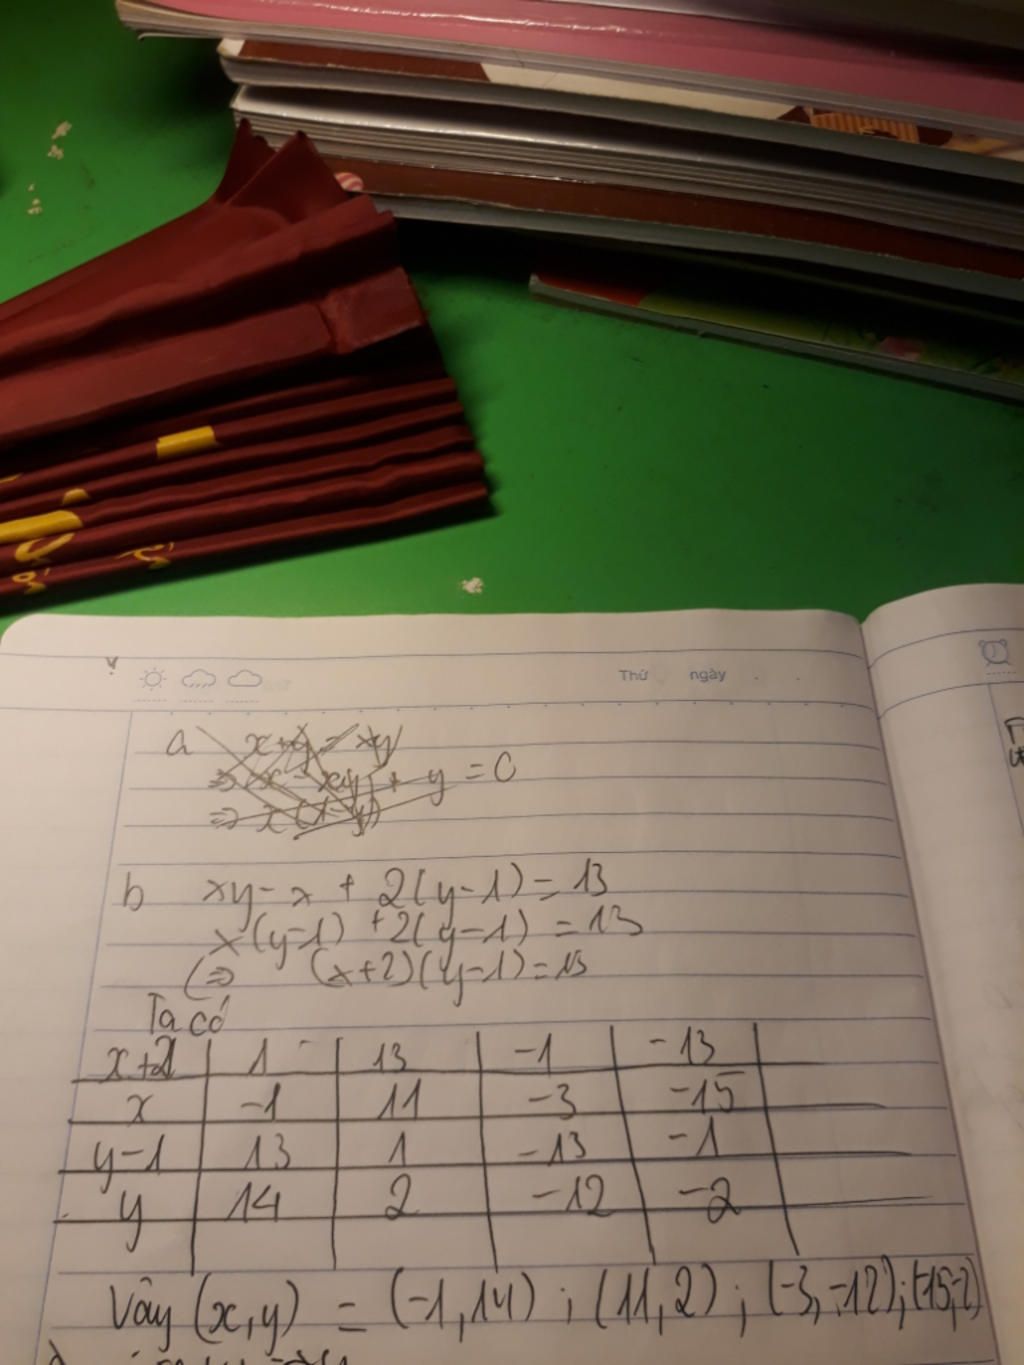 Thứ ngày
a x+y = xy
⇒ x - xy + y = 0
⇒ x(1-y)
b xy - x + 2(y-1) = 13
x(y-1) + 2(y-1) = 13
(⇒ (x+2)(y-1) = 13
Ta có
x+2 1 13 -1 -13
x -1 11 -3 -15
y-1 13 1 -13 -1
y 14 2 -12 -2
Vây (x,y) = (-1,14) ; (11,2) ; (-3,-12) ; (-15,-2)